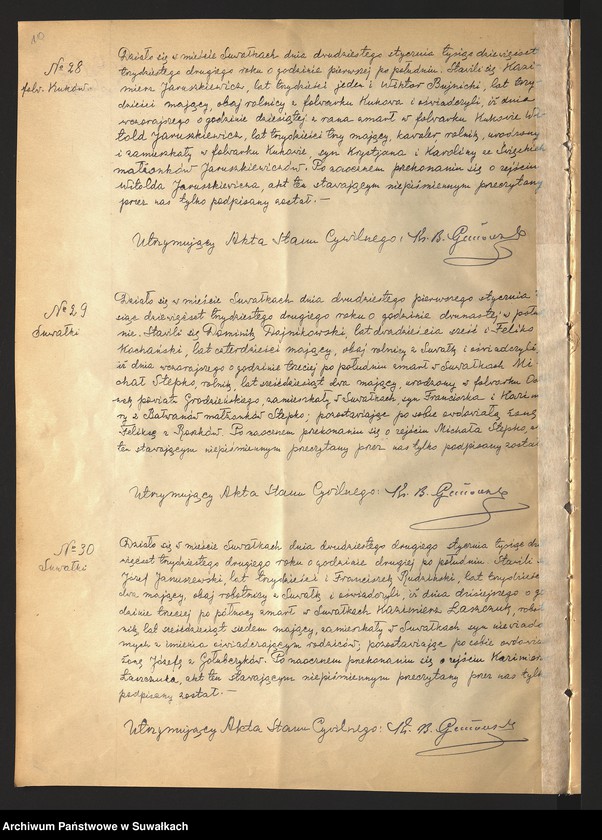 10
№ 28
folw. Kuków
Działo się w mieście Suwałkach dnia dwudziestego stycznia tysiąc dziewięćset
trzydziestego drugiego roku o godzinie pierwszej po południu. Stawili się Kazi-
mierz Jaruszkiewicz, lat trzydzieści jeden i Wiktor Bujnicki, lat trzy-
dzieści mający, obaj rolnicy z folwarku Kukowa i oświadczyli, iż dnia
wczorajszego o godzinie dziesiątej z rana zmarł w folwarku Kukowie Wi-
told Jaruszkiewicz, lat trzydzieści trzy mający, kawaler, rolnik, urodzony
i zamieszkały w folwarku Kukowie, syn Krystjana i Karoliny ze Święckich
małżonków Jaruszkiewiczów. Po naocznem przekonaniu się o zejściu
Witolda Jaruszkiewicza, akt ten stawającym niepiśmiennym przeczytany
przez nas tylko podpisany został.—
Utrzymujący Akta Stanu Cywilnego: Ks. B.
№ 29
Suwałki
Działo się w mieście Suwałkach dnia dwudziestego pierwszego stycznia
siąc dziewięćset trzydziestego drugiego roku o godzinie dwunastej w połu-
nie. Stawili się Dominik Dajnikowski, lat dwadzieścia sześć i Feliks
Kochański, lat czterdzieści mający, obaj rolnicy z Suwałk i oświadczyli,
iż dnia wczorajszego o godzinie trzeciej po południu zmarł w Suwałkach Mi-
chał Stepko, rolnik, lat sześćdziesiąt dwa mający, urodzony w folwarku
powiatu Grodzieńskiego, zamieszkały w Suwałkach syn Franciszka i Kazimie-
ry z Bałwanów małżonków Stepko; pozostawiając po sobie owdowiałą żonę
Feliksę z Ronków. Po naocznem przekonaniu się o zejściu Michała Stepko, a
ten stawającym niepiśmiennym przeczytany przez nas tylko podpisany został
Utrzymujący Akta Stanu Cywilnego: Ks. B.
№ 30
Suwałki
Działo się w mieście Suwałkach dnia dwudziestego drugiego stycznia tysiąc dzie-
więćset trzydziestego drugiego roku o godzinie drugiej po południu. Stawili
Józef Januszewski, lat trzydzieści i Franciszek Rudziński, lat trzydzieści
dwa mający, obaj robotnicy z Suwałk i oświadczyli, iż dnia dzisiejszego o go-
dzinie trzeciej po północy zmarł w Suwałkach Kazimierz Łaszczuk, robot-
nik, lat sześćdziesiąt siedem mający, zamieszkały w Suwałkach syn niewiado-
mych z imienia oświadczającym rodziców; pozostawiając po sobie owdowia-
żonę Józefę z Gołubczyków. Po naocznem przekonaniu się o zejściu Kazimierza
Łaszczuka, akt ten stawającym niepiśmiennym przeczytany przez nas tylko
podpisany został.—
Utrzymujący Akta Stanu Cywilnego: Ks. B.
Archiwum Państwowe w Suwałkach